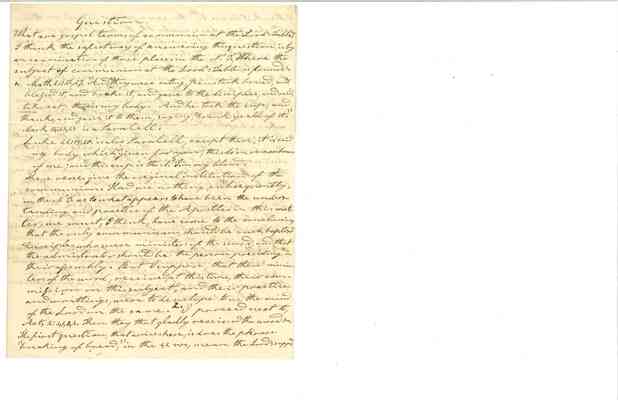 Question.
What are gospel terms of communion at the Lord's Table?
I think the safest way of answering the question, is by
an examination of those places in the N. T. where the
subject of communion at the Lord's Table is found.
Math. And they were eating, Jesus took bread, and
blessed it, and brake it, and gave to the disciples, and said
take eat, this is my body. And he took the cup, and
thanks, and gave it to them, saying, Drink ye all of it.
Mark is a Parallel.
Luke is also Parallel, except this, it is said
my body which is given for you; this do in remembrance
of me: and this cup is the N. T. in my blood.
Here we see given the original institution of the
communion. Had we nothing subsequently,
in the N. T. as to what appears to have been the under
standing and practice of the Apostles in this mat
ter, we must, I think, have come to the conclusion
that the only communicants should be such baptised
disciples who were ministers of the word; and that
the administrator should be the person presiding in
their assembly. But I suppose that these minis
ters of the word, received at this time, their com
mission on the subject, and their practice
and writings, were to develope to us, the mind
of the Lord in the same. I proceed next to
Acts Then they that gladly received the word &c
The first question, that arises here, is does the phrase
"breaking of bread," in the 42 vs, mean the Lord's supper